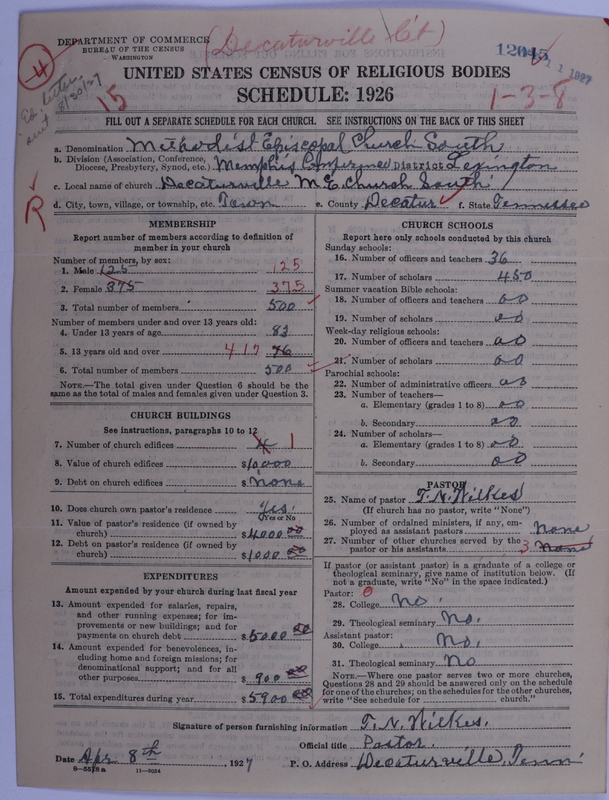 DEPARTMENT OF COMMERCE
BUREAU OF THE CENSUS
WASHINGTON
(Decaturville Ct)
4
Ed. letter sent 8/30/27
15
12045
1927
UNITED STATES CENSUS OF RELIGIOUS BODIES
SCHEDULE: 1926
1-3-8
FILL OUT A SEPARATE SCHEDULE FOR EACH CHURCH. SEE INSTRUCTIONS ON THE BACK OF THIS SHEET
a. Denomination Methodist Episcopal Church South
b. Division (Association, Conference, Diocese, Presbytery, Synod, etc.) Memphis Conference District Lexington
c. Local name of church Decaturville M E Church South
d. City, town, village, or township, etc. Town e. County Decatur f. State Tennessee
R
MEMBERSHIP
Report number of members according to definition of
member in your church
Number of members, by sex:
1. Male 125 125
2. Female 375 375
3. Total number of members 500
Number of members under and over 13 years old:
4. Under 13 years of age 83
5. 13 years old and over 417 76
6. Total number of members 500
NOTE.—The total given under Question 6 should be the
same as the total of males and females given under Question 3.
CHURCH BUILDINGS
See instructions, paragraphs 10 to 12
7. Number of church edifices 4 1
8. Value of church edifices $10,000
9. Debt on church edifices $ None
10. Does church own pastor's residence Yes.
(Yes or No)
11. Value of pastor's residence (if owned by
church) $4000 00
12. Debt on pastor's residence (if owned by
church) $1000 00
EXPENDITURES
Amount expended by your church during last fiscal year
13. Amount expended for salaries, repairs,
and other running expenses; for im-
provements or new buildings; and for
payments on church debt $5000 00
14. Amount expended for benevolences, in-
cluding home and foreign missions; for
denominational support; and for all
other purposes $900 00
15. Total expenditures during year $5900 00
CHURCH SCHOOLS
Report here only schools conducted by this church
Sunday schools:
16. Number of officers and teachers 36
17. Number of scholars 450
Summer vacation Bible schools:
18. Number of officers and teachers 00
19. Number of scholars 00
Week-day religious schools:
20. Number of officers and teachers 00
21. Number of scholars 00
Parochial schools:
22. Number of administrative officers 00
23. Number of teachers—
a. Elementary (grades 1 to 8) 00
b. Secondary 00
24. Number of scholars—
a. Elementary (grades 1 to 8) 00
b. Secondary 00
PASTOR
25. Name of pastor T. N. Wilkes
(If church has no pastor, write "None")
26. Number of ordained ministers, if any, em-
ployed as assistant pastors None
27. Number of other churches served by the
pastor or his assistants 3 None
If pastor (or assistant pastor) is a graduate of a college or
theological seminary, give name of institution below. (If
not a graduate, write "No" in the space indicated.)
Pastor: 0
28. College No.
29. Theological seminary No.
Assistant pastor:
30. College No.
31. Theological seminary No
NOTE.—Where one pastor serves two or more churches,
Questions 28 and 29 should be answered only on the schedule
for one of the churches; on the schedules for the other churches,
write "See schedule for church."
Signature of person furnishing information T. N. Wilkes.
Official title Pastor.
Date Apr 8th, 1927 P. O. Address Decaturville, Tenn
8—5518 a 11—9024